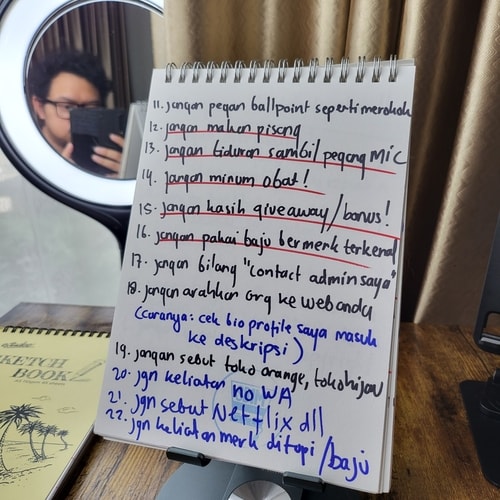 11. jangan pegan ballpoint seperti merokok
12. jangan makan pisang
13. jangan tiduran sambil pegang MIC
14. jangan minum obat!
15. jangan kasih giveaway/bonus!
16. jangan pakai baju bermerk terkenal
17. jangan bilang "contact admin saya"
18. jangan arahkan org ke web anda
(caranya: cek bio profile saya masuk
ke deskripsi)
19. jangan sebut toko orange, tokohijau
20. jgn keliatan no WA
21. jgn sebut Netflix dll
22. jgn keliatan merk di topi/baju
SKETCH
BOOK